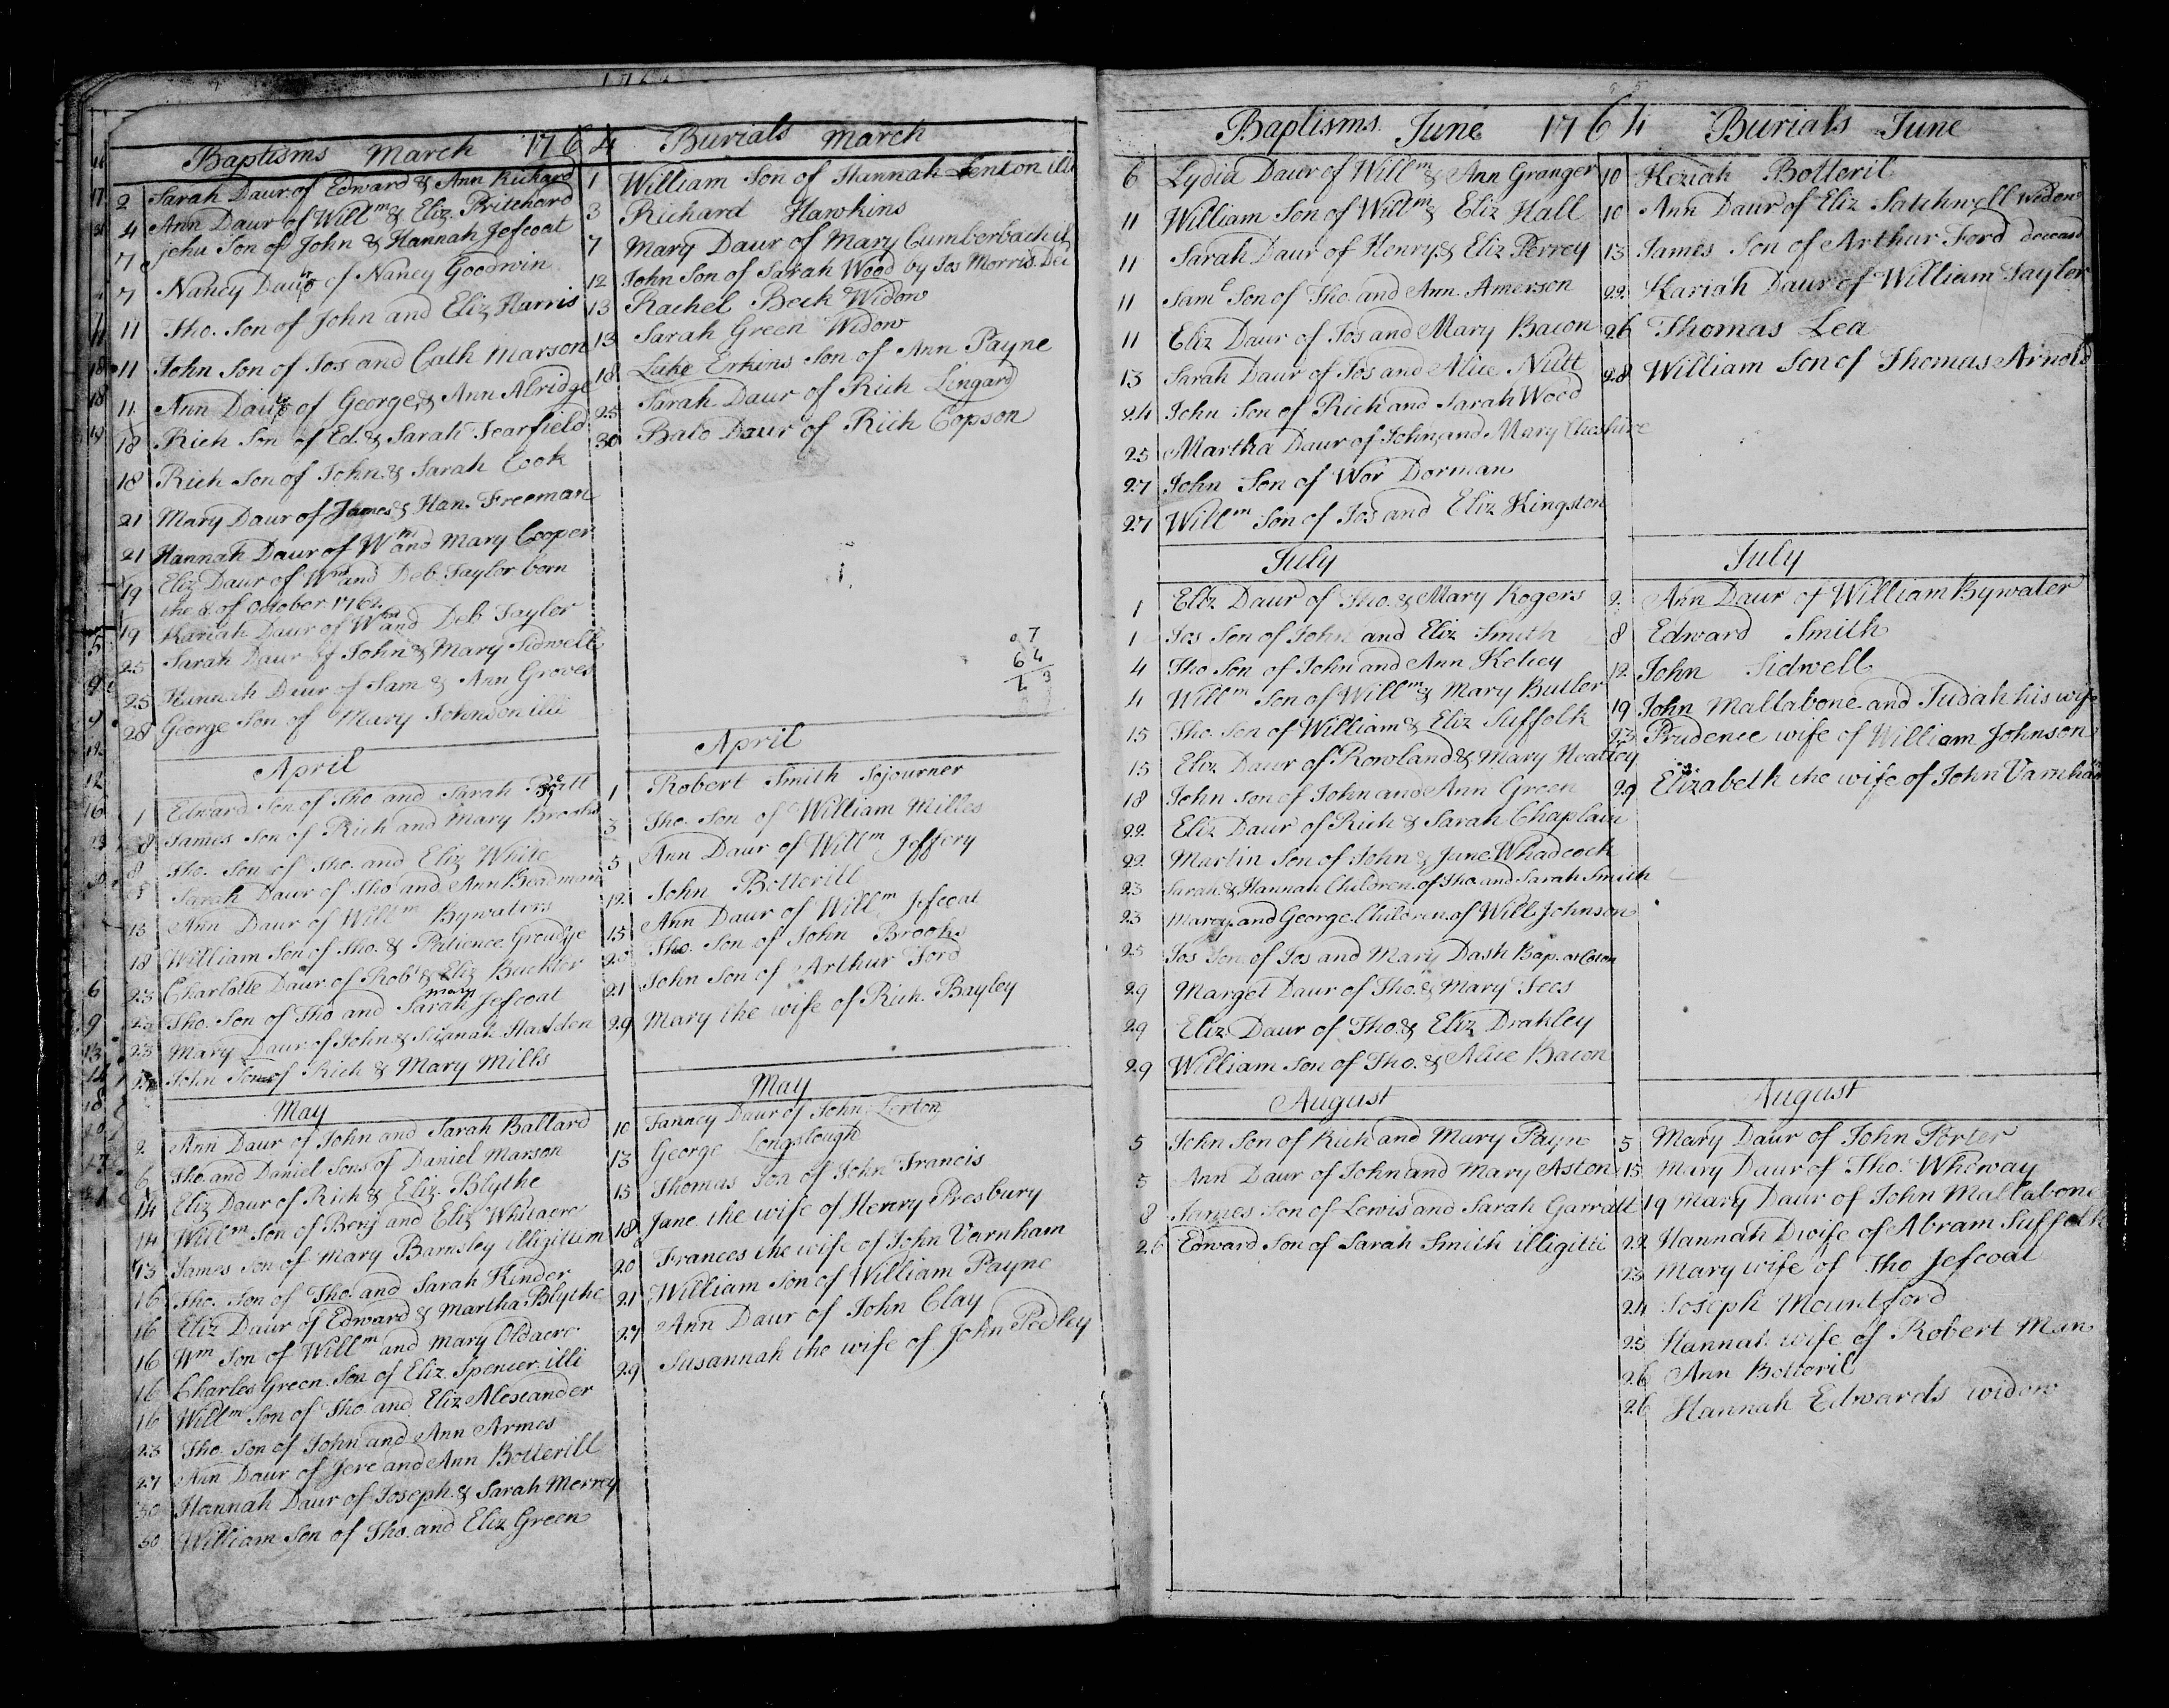 Baptisms March 1764
2 Sarah Daur of Edward & Ann Richard
4 Ann Daur of Willm & Eliz Pritchard
7 Jehu Son of John & Hannah Jefcoat
7 Nancy Daur of Nancy Goodwin
11 Tho. Son of John and Eliz Harris
11 John Son of Jos and Cath Marson
11 Ann Daur of George & Ann Alridge
18 Rich Son of Ed. & Sarah Scarfield
18 Rich Son of John & Sarah Cook
21 Mary Daur of James & Han. Freeman
21 Hannah Daur of Wm and Mary Cooper
19 Eliz Daur of Wm and Deb Taylor born
the 8 of October 1762
19 Kariah Daur of Wm and Deb Taylor
25 Sarah Daur of John & Mary Sidwell
25 Hannah Daur of Sam & Ann Groves
28 George Son of Mary Johnson illi
April
1 Edward Son of Tho and Sarah
8 James Son of Rich and Mary Brooks
8 Tho. Son of Tho. and Eliz White
8 Sarah Daur of Tho and Ann Boadman
13 Ann Daur of Willm Bywaters
18 William Son of Tho. & Patience Groudge
23 Charlotte Daur of Robt & Eliz Buckler
23 Tho. Son of Tho and Sarah mary Jefcoat
23 Mary Daur of John & Susanah Hadden
John Son of Rich & Mary Mills
May
2 Ann Daur of John and Sarah Ballard
6 Tho. and Daniel Sons of Daniel Marson
14 Eliz Daur of Rich & Eliz. Blythe
14 Willm Son of Benj and Eliz Whitacre
13 James Son of Mary Barnsley illigitim
16 Tho. Son of Tho. and Sarah Kinder
16 Eliz Daur of Edward & Martha Blythe
16 Wm Son of Willm and Mary Oldacre
16 Charles Green Son of Eliz Spencer illi
16 Willm Son of Tho. and Eliz Alexander
23 Tho. Son of John and Ann Armes
27 Ann Daur of Jere and Ann Botterill
30 Hannah Daur of Joseph & Sarah Merrey
30 William Son of Tho. and Eliz Green
Burials March
1 William Son of Hannah Lenton illi
3 Richard Hawkins
7 Mary Daur of Mary Cumberbach
12 John Son of Sarah Wood by Jos Morris. Dec
13 Rachel Beck Widow
13 Sarah Green Widow
18 Luke Erkins Son of Ann Payne
25 Sarah Daur of Rich Lingard
30 Balo Daur of Rich Copson
7
64
April
1 Robert Smith Sojourner
3 Tho. Son of William Milles
5 Ann Daur of Willm Jeffery
12 John Botterill
15 Ann Daur of Willm Jefcoat
20 Tho. Son of John Brooks
21 John Son of Arthur Ford
29 Mary the wife of Rich. Bayley
May
10 Fanney Daur of John Lerton
13 George Longslough
15 Thomas Son of John Francis
18 Jane the wife of Henry Presbury
20 Frances the wife of John Varnham
21 William Son of William Payne
27 Ann Daur of John Clay
29 Susannah the wife of John Pedley
Baptisms June 1764
6 Lydia Daur of Willm & Ann Granger
11 William Son of Willm & Eliz Hall
11 Sarah Daur of Henry & Eliz Perrey
11 Saml Son of Tho. and Ann. Amerson
11 Eliz Daur of Jos and Mary Bacon
13 Sarah Daur of Jos and Alice Nutt
24 John Son of Rich and Sarah Wood
25 Martha Daur of John and Mary Cheshire
27 John Son of Wor Dorman
27 Willm Son of Jos and Eliz Kingston
July
1 Eliz Daur of Tho. & Mary Rogers
1 Jos Son of John and Eliz Smith
4 Tho Son of John and Ann Kelsey
4 Willm Son of Willm & Mary Butler
15 Tho. Son of William & Eliz Suffolk
15 Eliz Daur of Rowland & Mary Neatley
18 John Son of John and Ann Green
22 Eliz Daur of Rich & Sarah Chaplain
22 Martin Son of John & Jane Whadcock
23 Sarah & Hannah Children of Tho and Sarah Smith
23 Marey and George Children of Will Johnson
25 Jos Son of Jos and Mary Dash Bap. at Coton
29 Marget Daur of Tho. & Mary Lees
29 Eliz Daur of Tho. & Eliz Drakley
29 William Son of Tho. & Alice Bacon
August
5 John Son of Rich and Mary Payn
5 Ann Daur of John and Mary Aston
8 James Son of Lewis and Sarah Garratt
26 Edward Son of Sarah Smith illigitti
Burials June
10 Keziah Botteril
10 Ann Daur of Eliz Satchwell Widow
13 James Son of Arthur Ford deceasd
22 Kariah Daur of William Taylor
26 Thomas Lea
28 William Son of Thomas Arnold
July
2 Ann Daur of William Bywater
8 Edward Smith
12 John Sidwell
19 John Mallabone and Judah his wife
23 Prudence wife of William Johnson
29 Elizabeth the wife of John Varnham
August
5 Mary Daur of John Porter
15 Mary Daur of Tho. Whoway
19 Mary Daur of John Mallabone
22 Hannah D wife of Abram Suffolk
23 Mary wife of Tho Jefcoat
24 Joseph Mountford
25 Hannah wife of Robert Man
26 Ann Botteril
26 Hannah Edwards widow